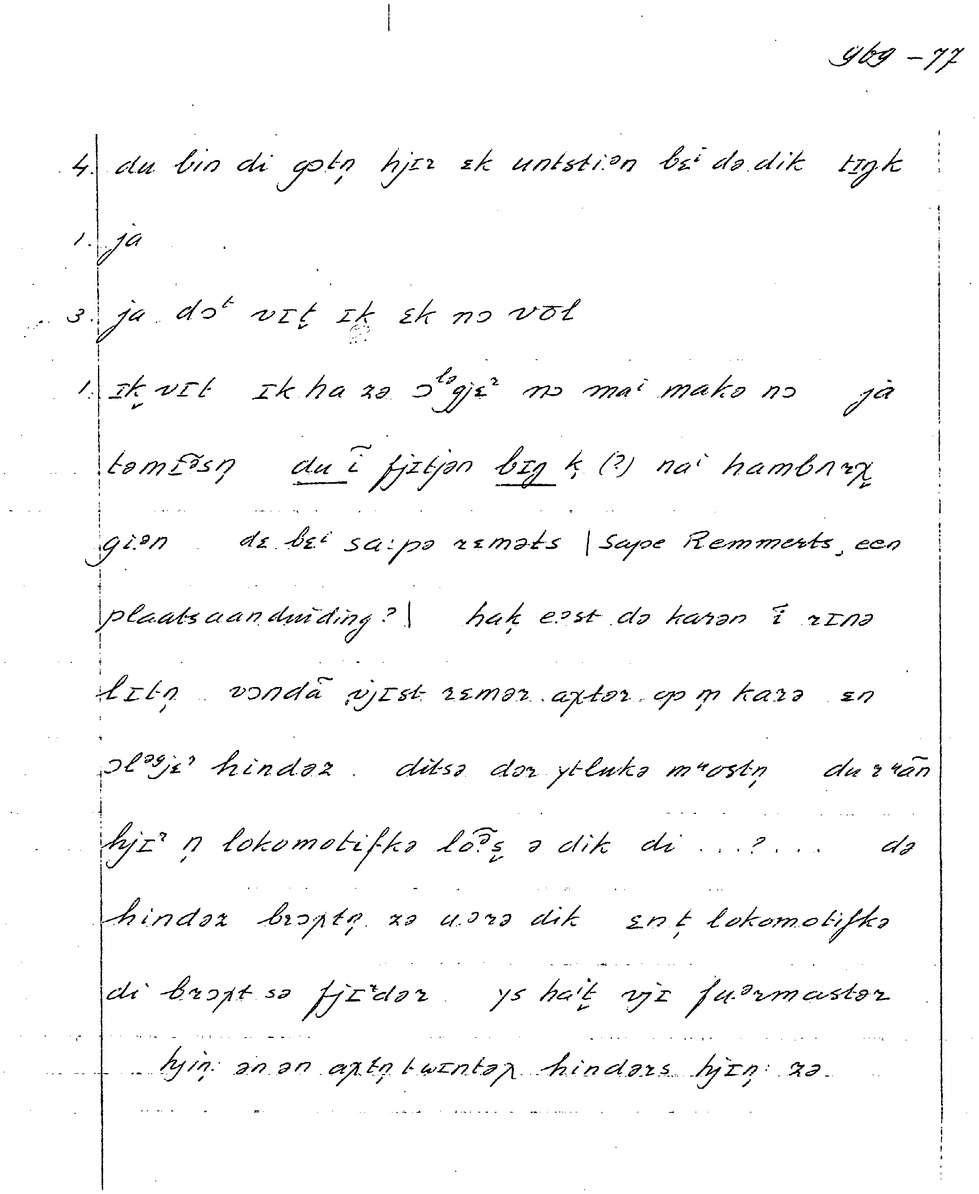 gbg - 77
4. du bin di gɔtṇ hjɪr ɛk untstiːən bɛⁱ də dik tɪŋk
1. ja
3. ja dɔᵗ vɪt̬ ɪk ɛk nɔ vōl
1. ɪk̬ vɪt ɪk ha zə ɔˡᵊgjɛʳ nɔ maⁱ makə nɔ ja
təmĩᵊsṇ du ĩ fjɪtjən bɪŋ ḳ (?) naⁱ hambʌrχ̬
giːən dɛ bɛⁱ saːpə rɛməts | Sape Remmerts, een
plaatsaanduiding? | hak̬ eᵊst də karən ĩ rɪnə
lɪtṇ vɔndã vjɪst rɛmər aχtər op ṃ karə ɛn
ɔlᵊᵍjɛʳ hindəz ditsə dər ytlukə mʷostṇ du rʷãn
hjɪʳ ṇ lokomotifkə lõːᵊs̬ ə dik di ...?... də
hindəz brɔχtṇ zə uərə dik ɛn t̬ lokomotifkə
di brɔχt sə fjɪʳdər ys haⁱt̬ vjɪ fuːərmastər
hjiṇː ən ən aχtṇtwɪntəχ hindərs hjɪṇː zə